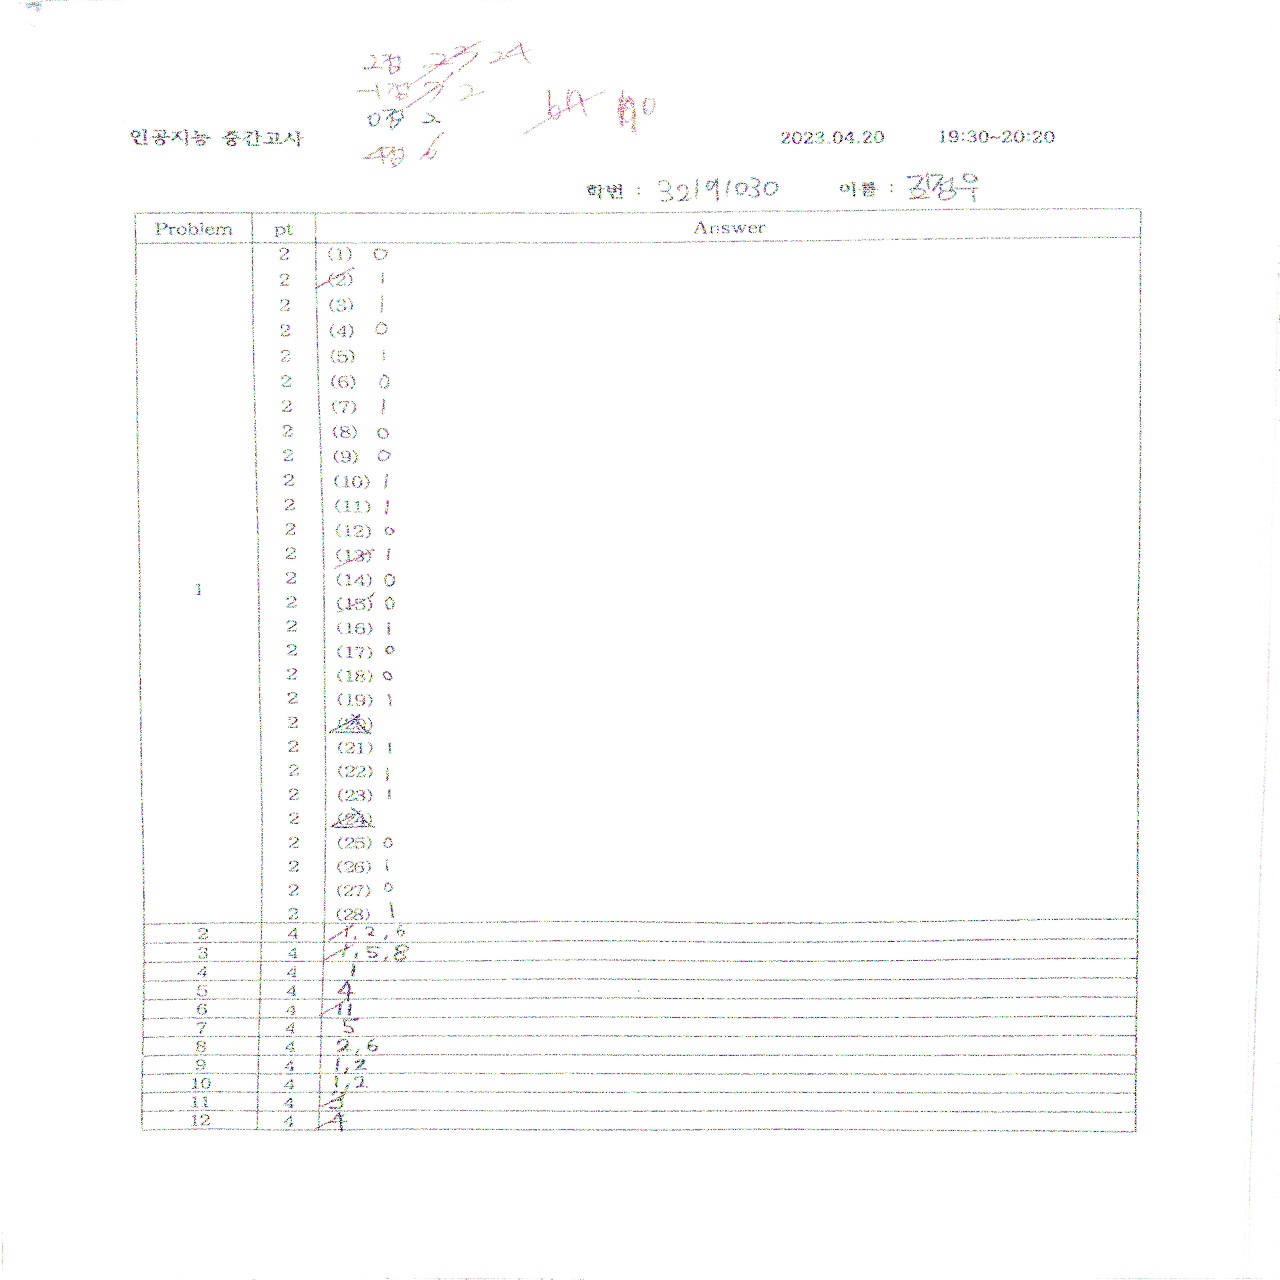 2점 22 24
-1점 3 2
0점 2
4점 6
인공지능 중간고사 2023.04.20 19:30~20:20
학번 : 32191030 이름 :
Problem pt Answer
2 (1) 0
2 (2) 1
2 (3) 1
2 (4) 0
2 (5) 1
2 (6) 0
2 (7) 1
2 (8) 0
2 (9) 0
2 (10) 1
2 (11) 1
2 (12) 0
2 (13) 1
2 (14) 0
1
2 (15) 0
2 (16) 1
2 (17) 0
2 (18) 0
2 (19) 1
2 (20)
2 (21) 1
2 (22) 1
2 (23) 1
2 (24)
2 (25) 0
2 (26) 1
2 (27) 0
2 (28) 1
2 4 1, 2, 6
3 4 1, 5, 8
4 4 1
5 4 4
6 4 11
7 4 5
8 4 2, 6
9 4 1, 2
10 4 1, 2
11 4 3
12 4 4